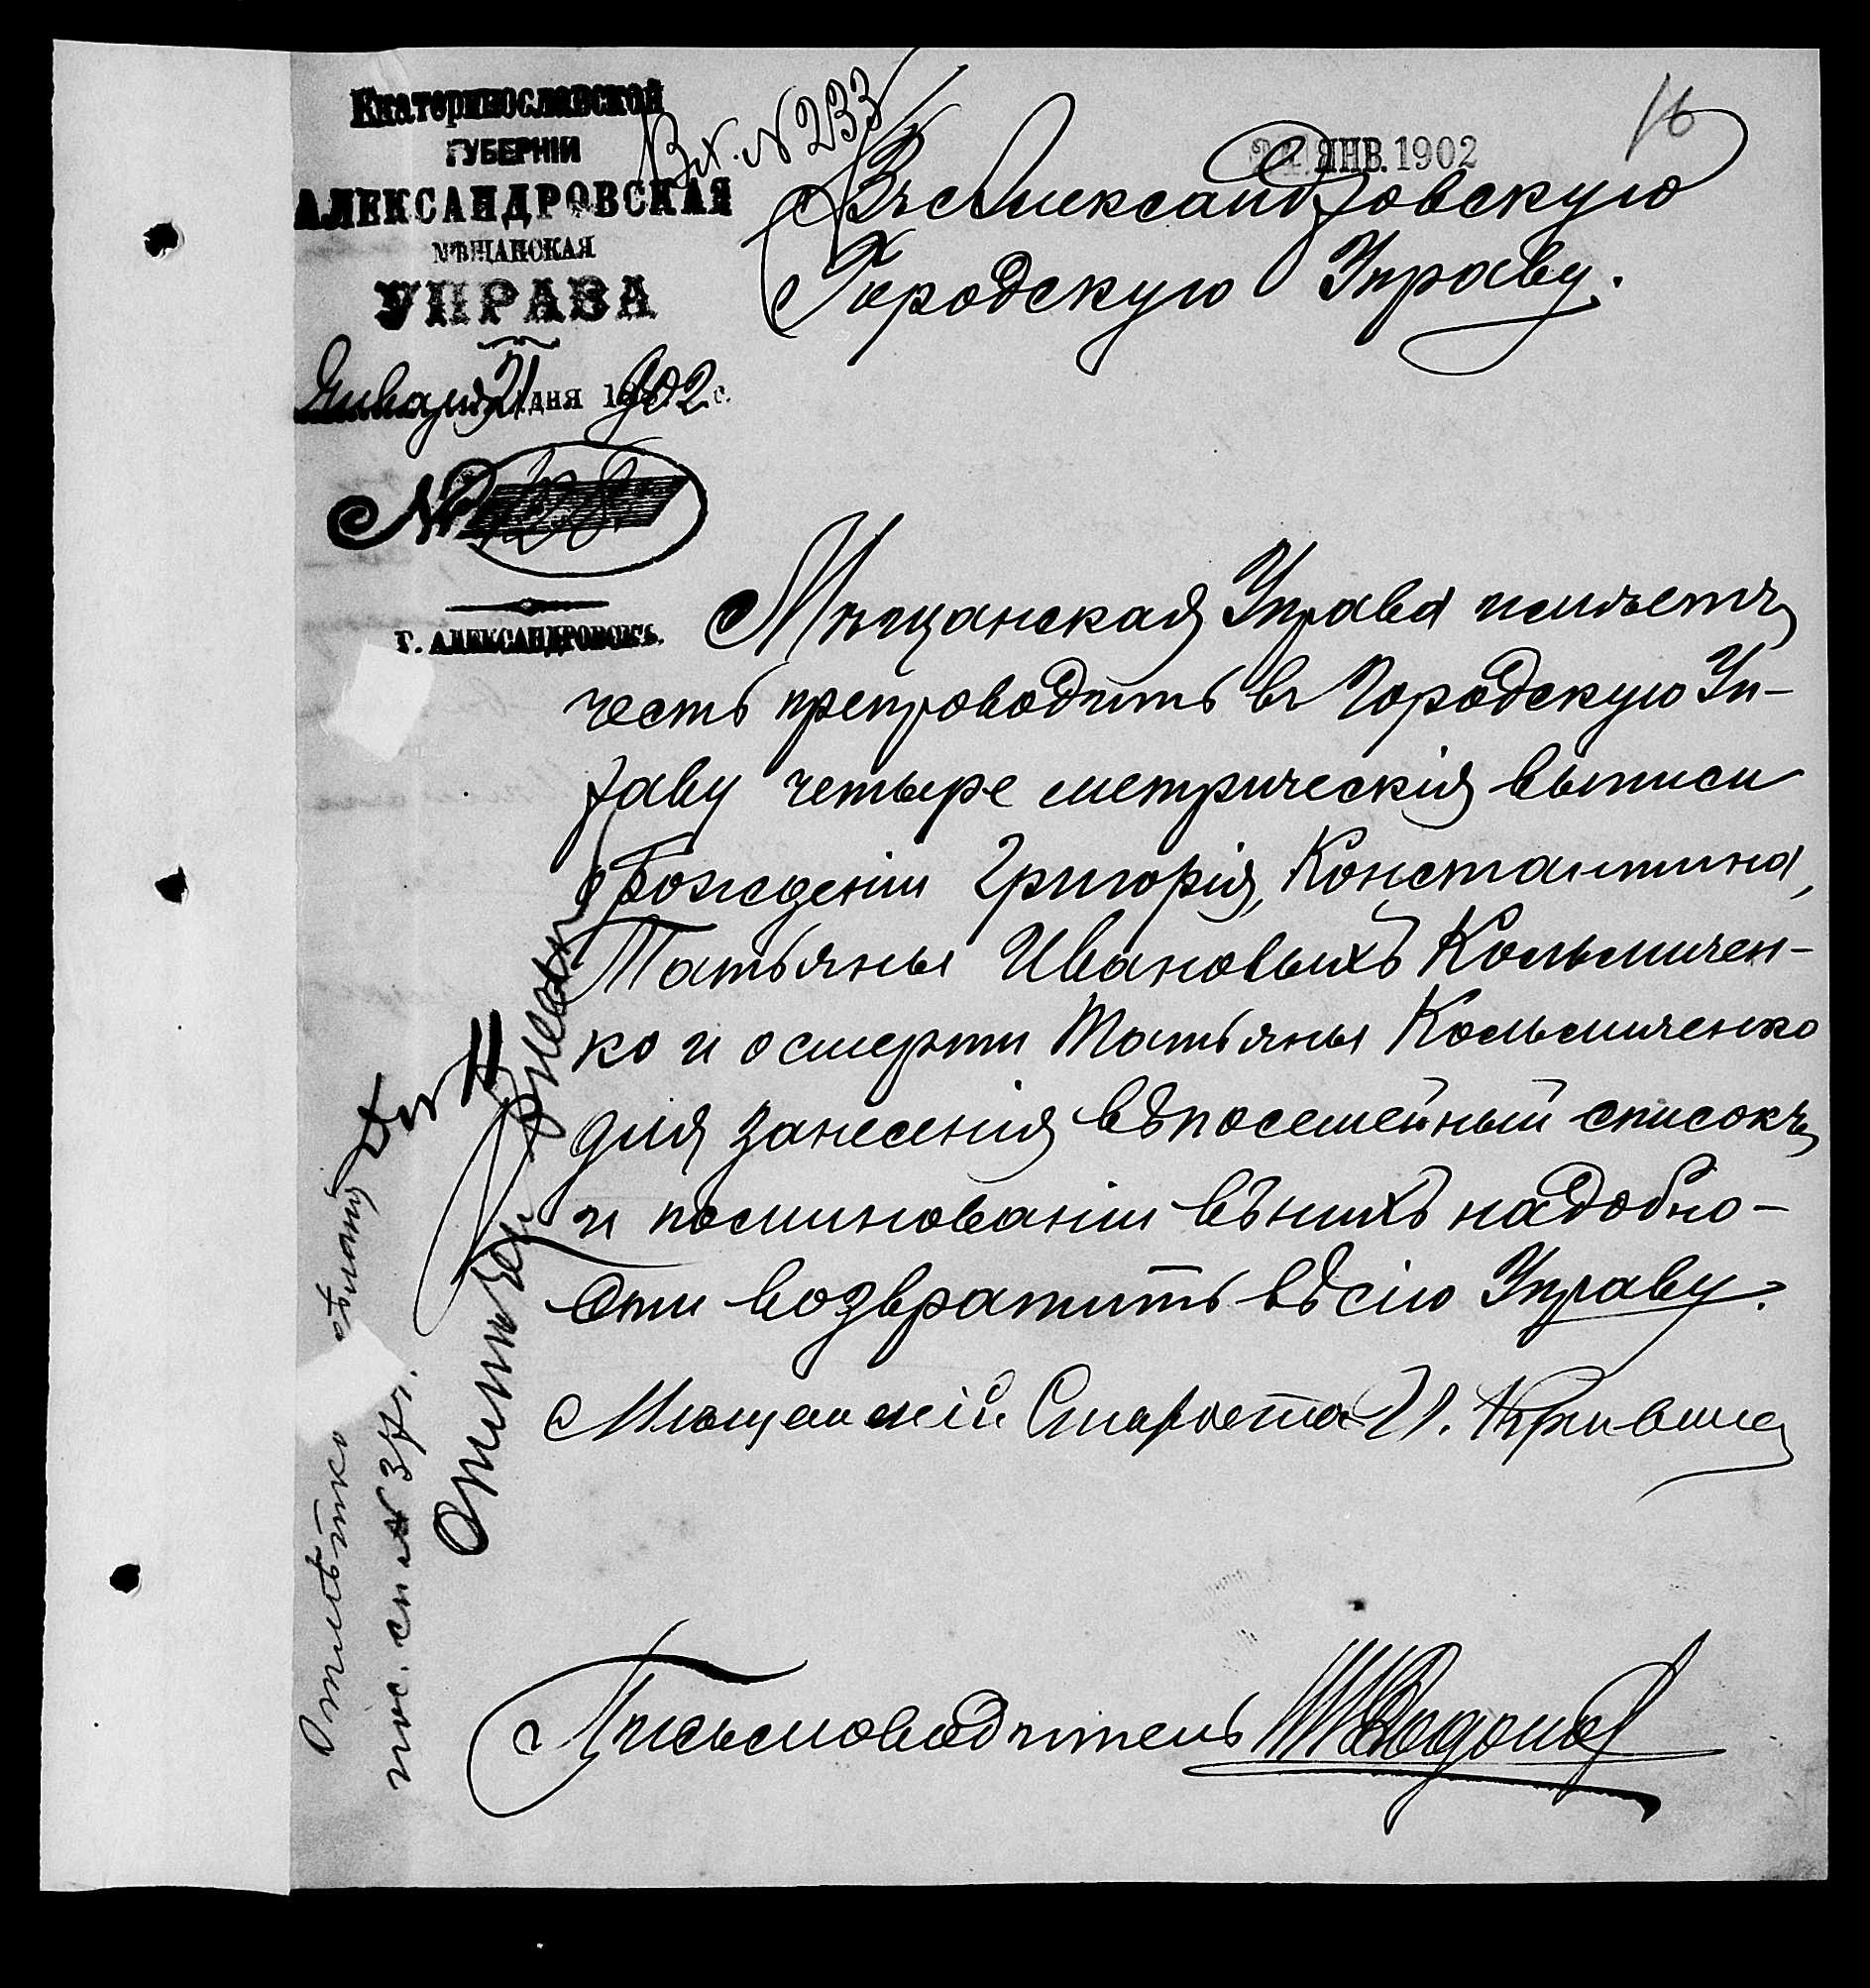 Екатеринославской
ГУБЕРНІИ
АЛЕКСАНДРОВСКАЯ
МѢЩАНСКАЯ
УПРАВА
Января 21 дня 1902 г.
№ 128
Г. АЛЕКСАНДРОВСКЪ.
Вх. N 233
ЯНВ. 1902
16
Въ Александровскую
Городскую Управу.
Мѣщанская Управа имѣетъ
честь препроводить въ Городскую Уп-
раву четыре метрическія выписи
о рожденіи Григорія, Константина,
Татьяны Ивановыхъ Кольмичен-
ко и о смерти Татьяны Кольмиченко
для занесенія въ посемейный списокъ
и по минованіи въ нихъ надобно-
сти возвратить въ сію Управу.
Мѣщанскій Староста И.
Письмоводитель
Отмѣтка
пос. сп. N 37.